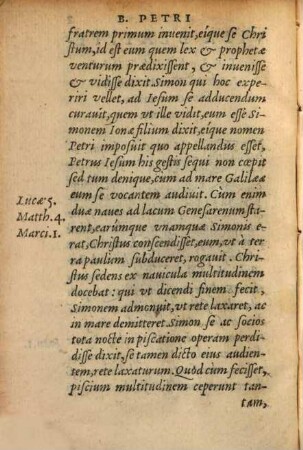 B. PETRI
fratrem primum inuenit, eique se Chri
stum, id est eum quem lex & prophetæ
venturum prædixissent, & inuenisse
& vidisse dixit. Simon qui hoc expe-
riri vellet, ad Iesum se adducendum
curauit, quem vt ille vidit, eum esse Si-
monem Ionæ filium dixit, eique nomen
Petri imposuit quo appellandus esset,
Petrus Iesum his gestis sequi non cœpit
sed tum denique, cum ad mare Galilææ
eum se vocantem audiuit. Cum enim
Lucæ 5.
Matth. 4.
Marci. 1.
duæ naues ad lacum Genesarenum sta-
rent, earumque vnamquæ Simonis e-
rat, Christus conscendisset, eum, vt à ter
ra pauliem subduceret, rogauit. Chri-
stus sedens ex nauicula multitudinem
docebat: qui vt dicendi finem fecit,
Simonem admonuit, vt rete laxaret, ac
in mare demitteret. Simon se ac socios
tota nocte in piscatione operam perdi-
disse dixit, se tamen dicto eius audien-
tem, rete laxaturum. Quòd cum fecisset,
piscium multitudinem ceperunt tan-
tam,